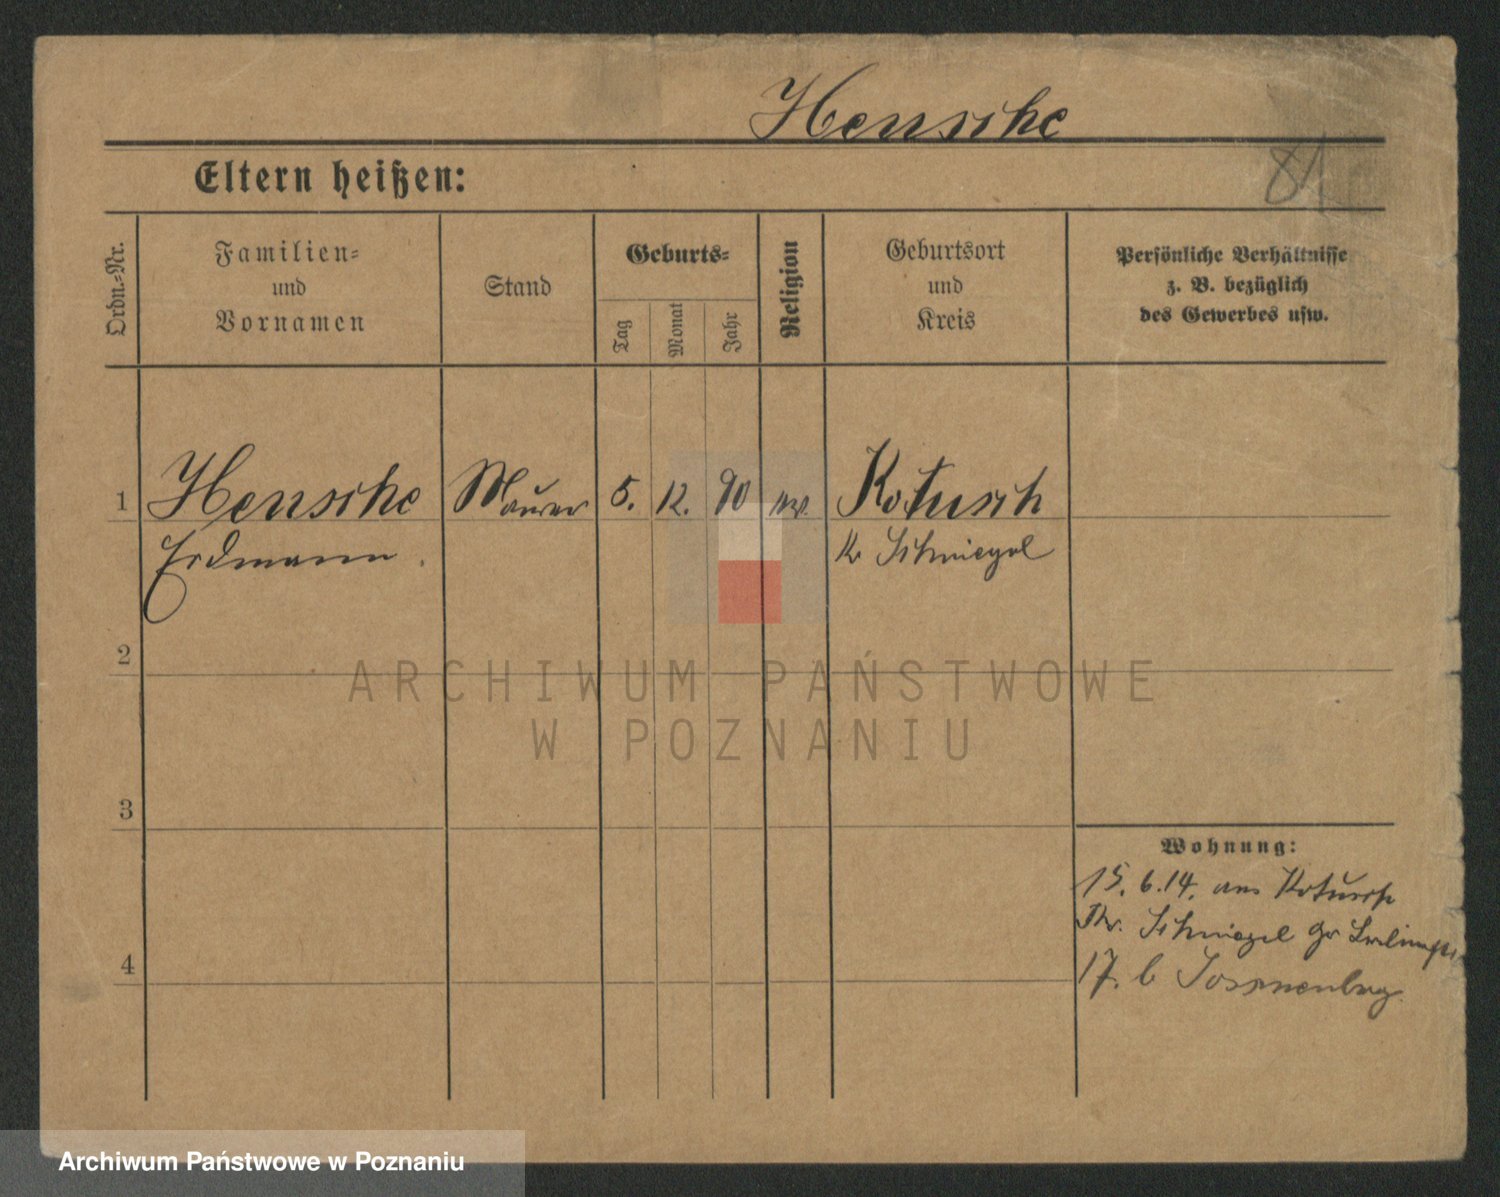 Henschke
81
Eltern heißen:
Ordn.-Nr.
Familien-
und
Vornamen
Stand
Geburts-
Tag
Monat
Jahr
Religion
Geburtsort
und
Kreis
Persönliche Verhältnisse
z. B. bezüglich
des Gewerbes usw.
1
Henschke
Erdmann
Maurer
5.
12.
90
ev.
Kotusch
Kr Schmiegel
2
3
4
Wohnung:
15. 6. 14. aus Kotusch
Kr. Schmiegel
17. b
ARCHIWUM PAŃSTWOWE
W POZNANIU
Archiwum Państwowe w Poznaniu